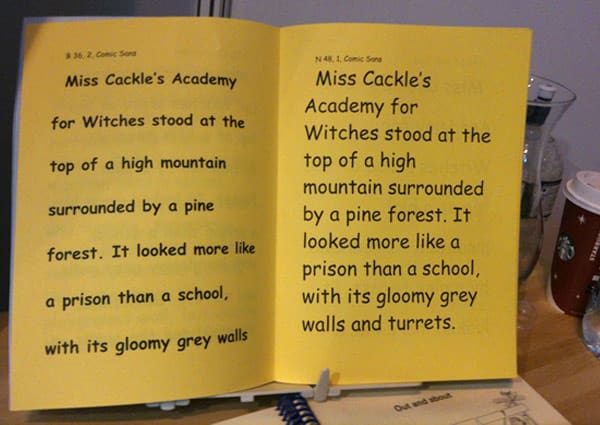 B 36, 2, Comic Sans
Miss Cackle's Academy
for Witches stood at the
top of a high mountain
surrounded by a pine
forest. It looked more like
a prison than a school,
with its gloomy grey walls
N 48, 1, Comic Sans
Miss Cackle's
Academy for
Witches stood at the
top of a high
mountain surrounded
by a pine forest. It
looked more like a
prison than a school,
with its gloomy grey
walls and turrets.
Out and about